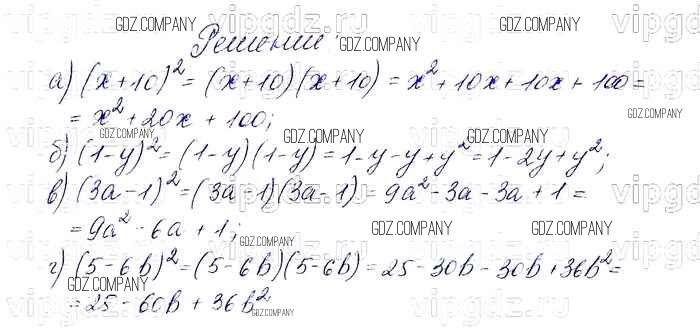 Решение
а) (x+10)² = (x+10)(x+10) = x²+10x+10x+100=
= x²+20x+100;
б) (1-y)²=(1-y)(1-y)=1-y-y+y²=1-2y+y²;
в) (3a-1)²=(3a-1)(3a-1)=9a²-3a-3a+1=
=9a²-6a+1;
г) (5-6b)²=(5-6b)(5-6b)=25-30b-30b+36b²=
=25-60b+36b²
GDZ.COMPANY
GDZ.COMPANY
GDZ.COMPANY
GDZ.COMPANY
GDZ.COMPANY
GDZ.COMPANY
GDZ.COMPANY
GDZ.COMPANY
GDZ.COMPANY
GDZ.COMPANY
GDZ.COMPANY
GDZ.COMPANY
vipgdz.ru
vipgdz.ru
vipgdz.ru